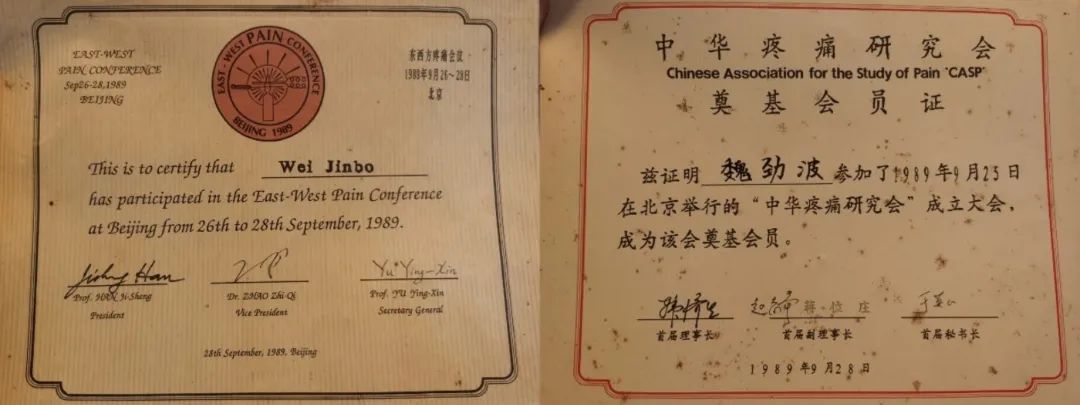 EAST-WEST
PAIN CONFERENCE
Sep26-28,1989
BEIJING
EAST-WEST PAIN CONFERENCE
BEIJING 1989
东西方疼痛会议
1989年9月26~28日
北京
This is to certify that Wei Jinbo
has participated in the East-West Pain Conference
at Beijing from 26th to 28th September, 1989.
Jisheng Han
Yu Ying-Xin
Prof. HAN Ji-Sheng
President
Dr. ZHAO Zhi-Qi
Vice President
Prof. YU Ying-Xin
Secretary General
28th September, 1989. Beijing
中华疼痛研究会
Chinese Association for the Study of Pain "CASP"
奠基会员证
兹证明 魏劲波 参加了1989年9月25日
在北京举行的“中华疼痛研究会”成立大会，
成为该会奠基会员。
韩济生
蒋位庄
首届理事长
首届副理事长
首届秘书长
1989年9月28日